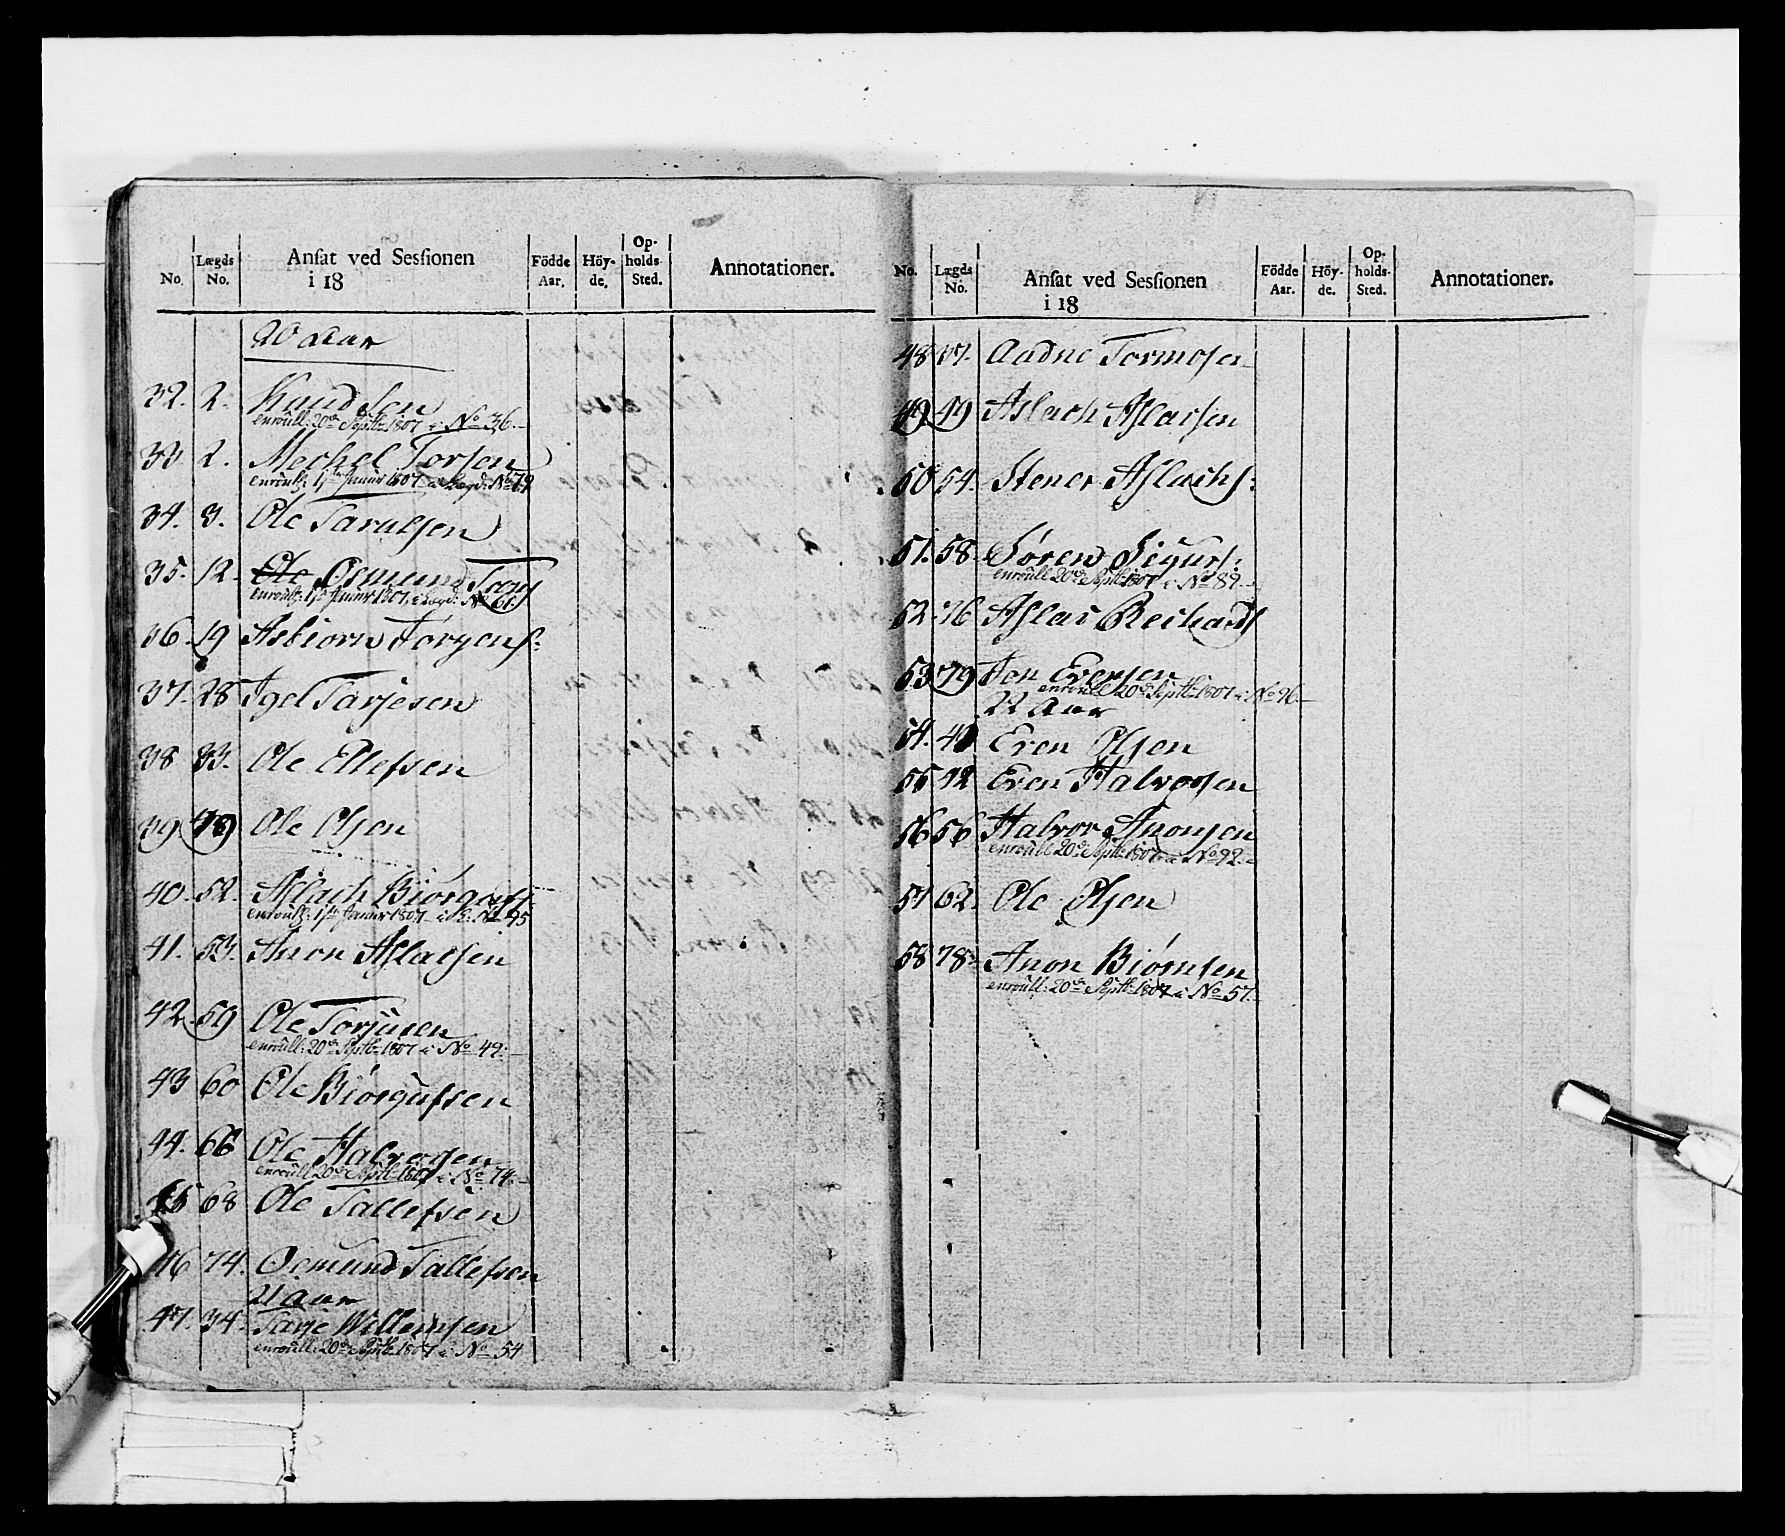 No. Lægds No. Ansat ved Sessionen i 18 Födde Aar. Höyde. Opholds-Sted. Annotationer.
20 aar
32. 2. Knud Sen
enroull: 20de Septb: 1807 i No 36.
33 2. Mechel Torsen
enroull: 1ste Januar 1807 i Legd: No 79
34. 3. Ole Tarulsen
35. 12. Ole Osmund Tarj
enroull: 1ste Januar 1807 i Legd: No 61.
36. 19 Asbiorn Jorgens:
37. 28 Igel Tarjesen
38 33. Ole Ellefsen
39 49 Ole Olsen
40. 52. Aslach Biørgufs:
enroull: 1ste Januar 1807 i No 95
41. 53. Anon Aslacsen
42 59 Ole Torjusen
enroull: 20de Septb: 1807 i No 49.
43 60 Ole Biørgufsen
44. 66 Ole Halvorsen
enroull: 20de Septb: 1807 i No 74.
45 68 Ole Tallefsen
46 74. Osmund Tallefsen
21 aar
47. 34. Tarje Willemsen
enroull: 20de Septb: 1807 i No 54
No. Lægds No. Ansat ved Sessionen i 18 Födde Aar. Höy-de. Op-holds-Sted. Annotationer.
48 37. Aadne Tormosen
49 49 Aslach Aslacsen
50 54. Stener Aslachs:
51. 58. Søren Sigurs:
enroull: 20de Septb: 1807 i No 89.
52. 76 Aslac Reihards
53 79 Jon Evensen
enroull: 20de Septb: 1807 i No 96
22 Aar
54. 40 Even Olsen
55 42 Even Halvorsen
56 56 Halvor Anonsen
enroull: 20de Septb: 1807 i No 92.
57 62. Ole Olsen
58 78. Anon Biørnsen
enroull: 20de Septb: 1807 i No 57.